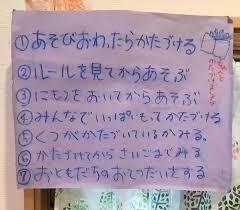 ①あそびおわったらかたづける
②ルールを見てからあそぶ
③にもつをおいてからあそぶ
④みんなでいっぱいもってかたづける
⑤くつがかたづいているかみる。
⑥かたづけてからさいごまでみる
⑦おともだちのおてつだいをする